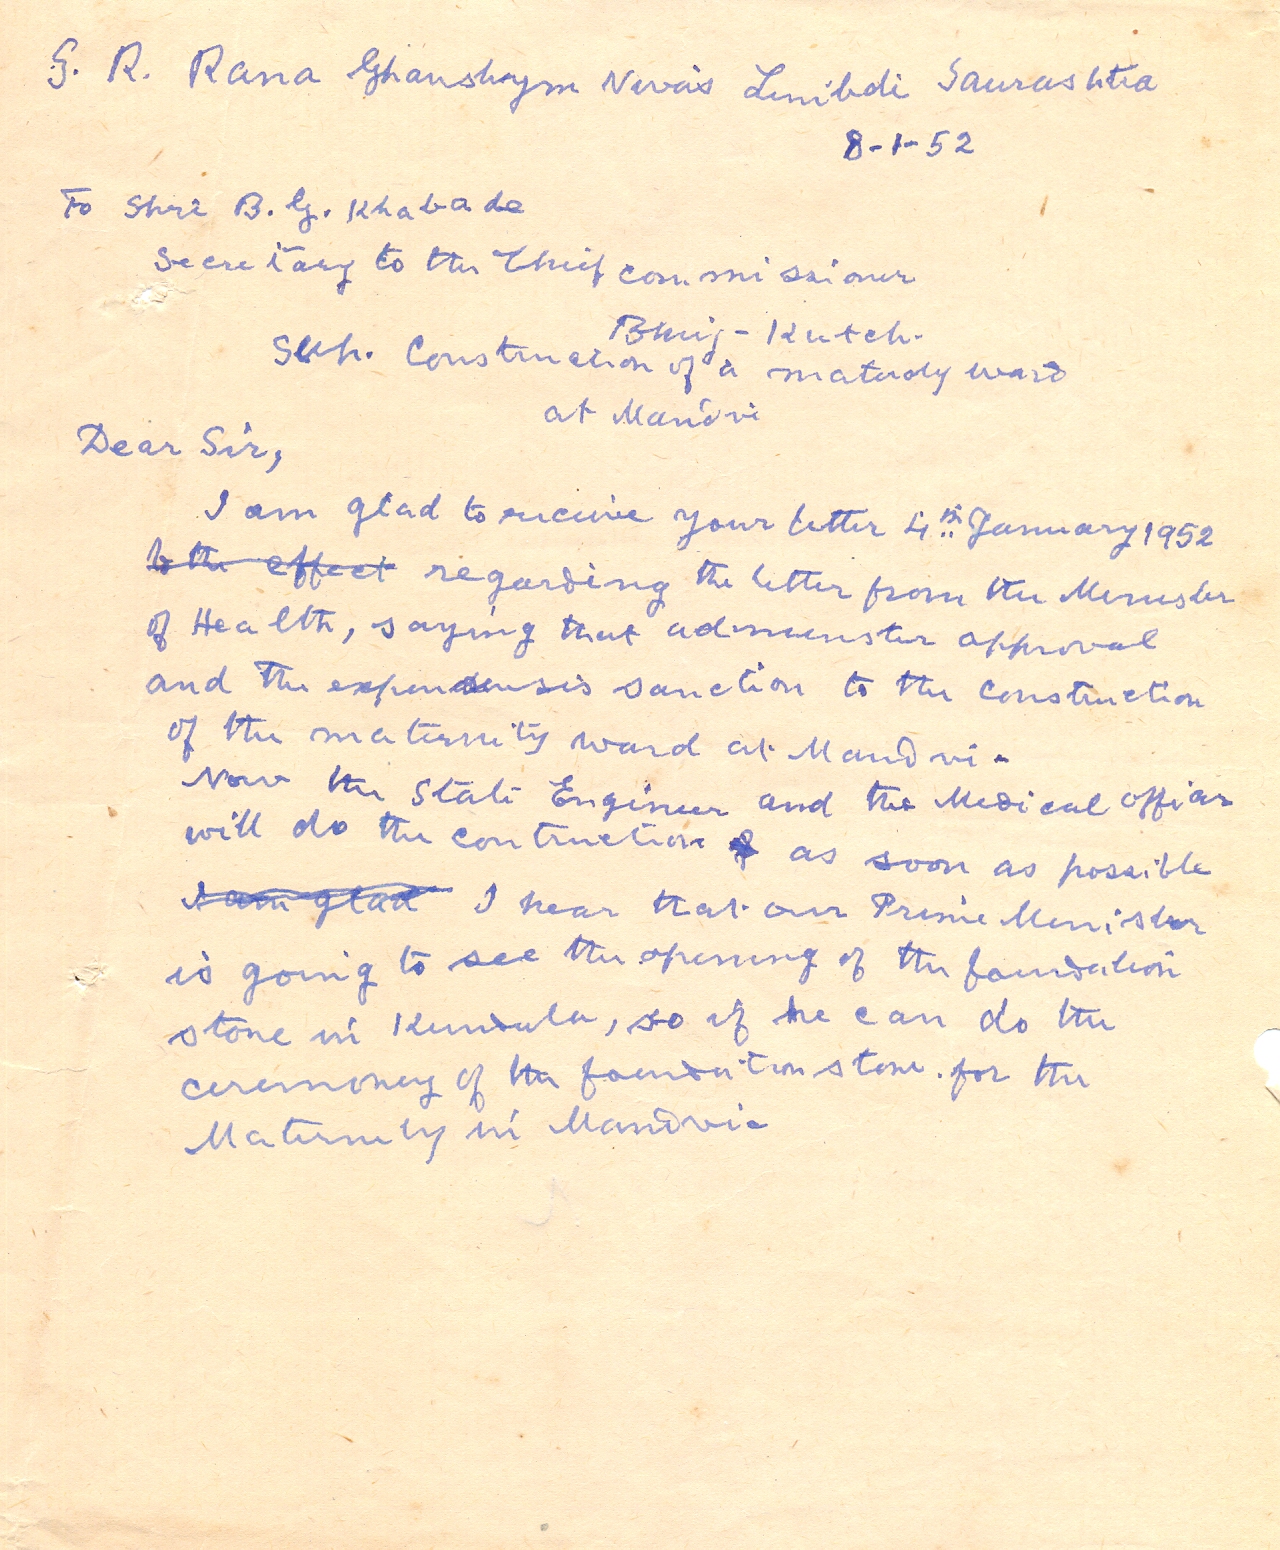 S. R. Rana Ghanshyam Nivas Limibdi Saurashtra
8-1-52
To Shri B. G. Khabade
Secretary to the Chief commissioner
Bhuj - Kutch.
Sub. Construction of a matudy ward
at Mandvi
Dear Sir,
I am glad to receive your letter 4th January 1952
to the effect regarding the letter from the Minister
of Health, saying that administer approval
and the expensis sanction to the construction
of the maternity ward at Mandvi.
Now the State Engineer and the Medical officer
will do the contruction as soon as possible
I am glad I hear that our Prime Minister
is going to see the opening of the foundation
stone in Kundala, so if he can do the
ceremoney of the foundation stone. for the
Maternity in Mandvi.